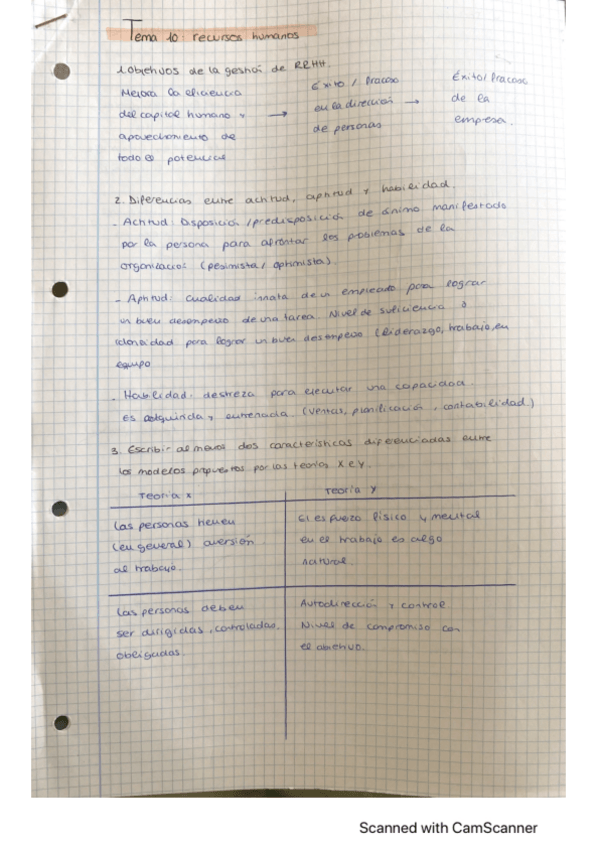 Tema 10: recursos humanos
1. Objetivos de la gestión de RRHH.
Mejora la eficiencia
del capital humano y
aprovechamiento de
todo el potencial
→
Éxito / Fracaso
en la dirección
de personas
→
Éxito / Fracaso
de la
empresa.
2. Diferencias entre actitud, aptitud y habilidad.
- Actitud: Disposición / predisposición de ánimo manifestado
por la persona para afrontar los problemas de la
organización (pesimista / optimista).
- Aptitud: Cualidad innata de un empleado para lograr
un buen desempeño de una tarea. Nivel de suficiencia o
idoneidad para lograr un buen desempeño (liderazgo, trabajo en
equipo
- Habilidad: destreza para ejecutar una capacidad.
Es adquirida y entrenada. (ventas, planificación, contabilidad)
3. Escribir al menos dos características diferenciadas entre
los modelos propuestos por las teorías X e Y.
Teoría x
Teoría y
Las personas tienen
(en general) aversión
al trabajo.
El esfuerzo físico y mental
en el trabajo es algo
natural.
Las personas deben
ser dirigidas, controladas,
obligadas.
Autodirección y control
Nivel de compromiso con
el objetivo.
Scanned with CamScanner